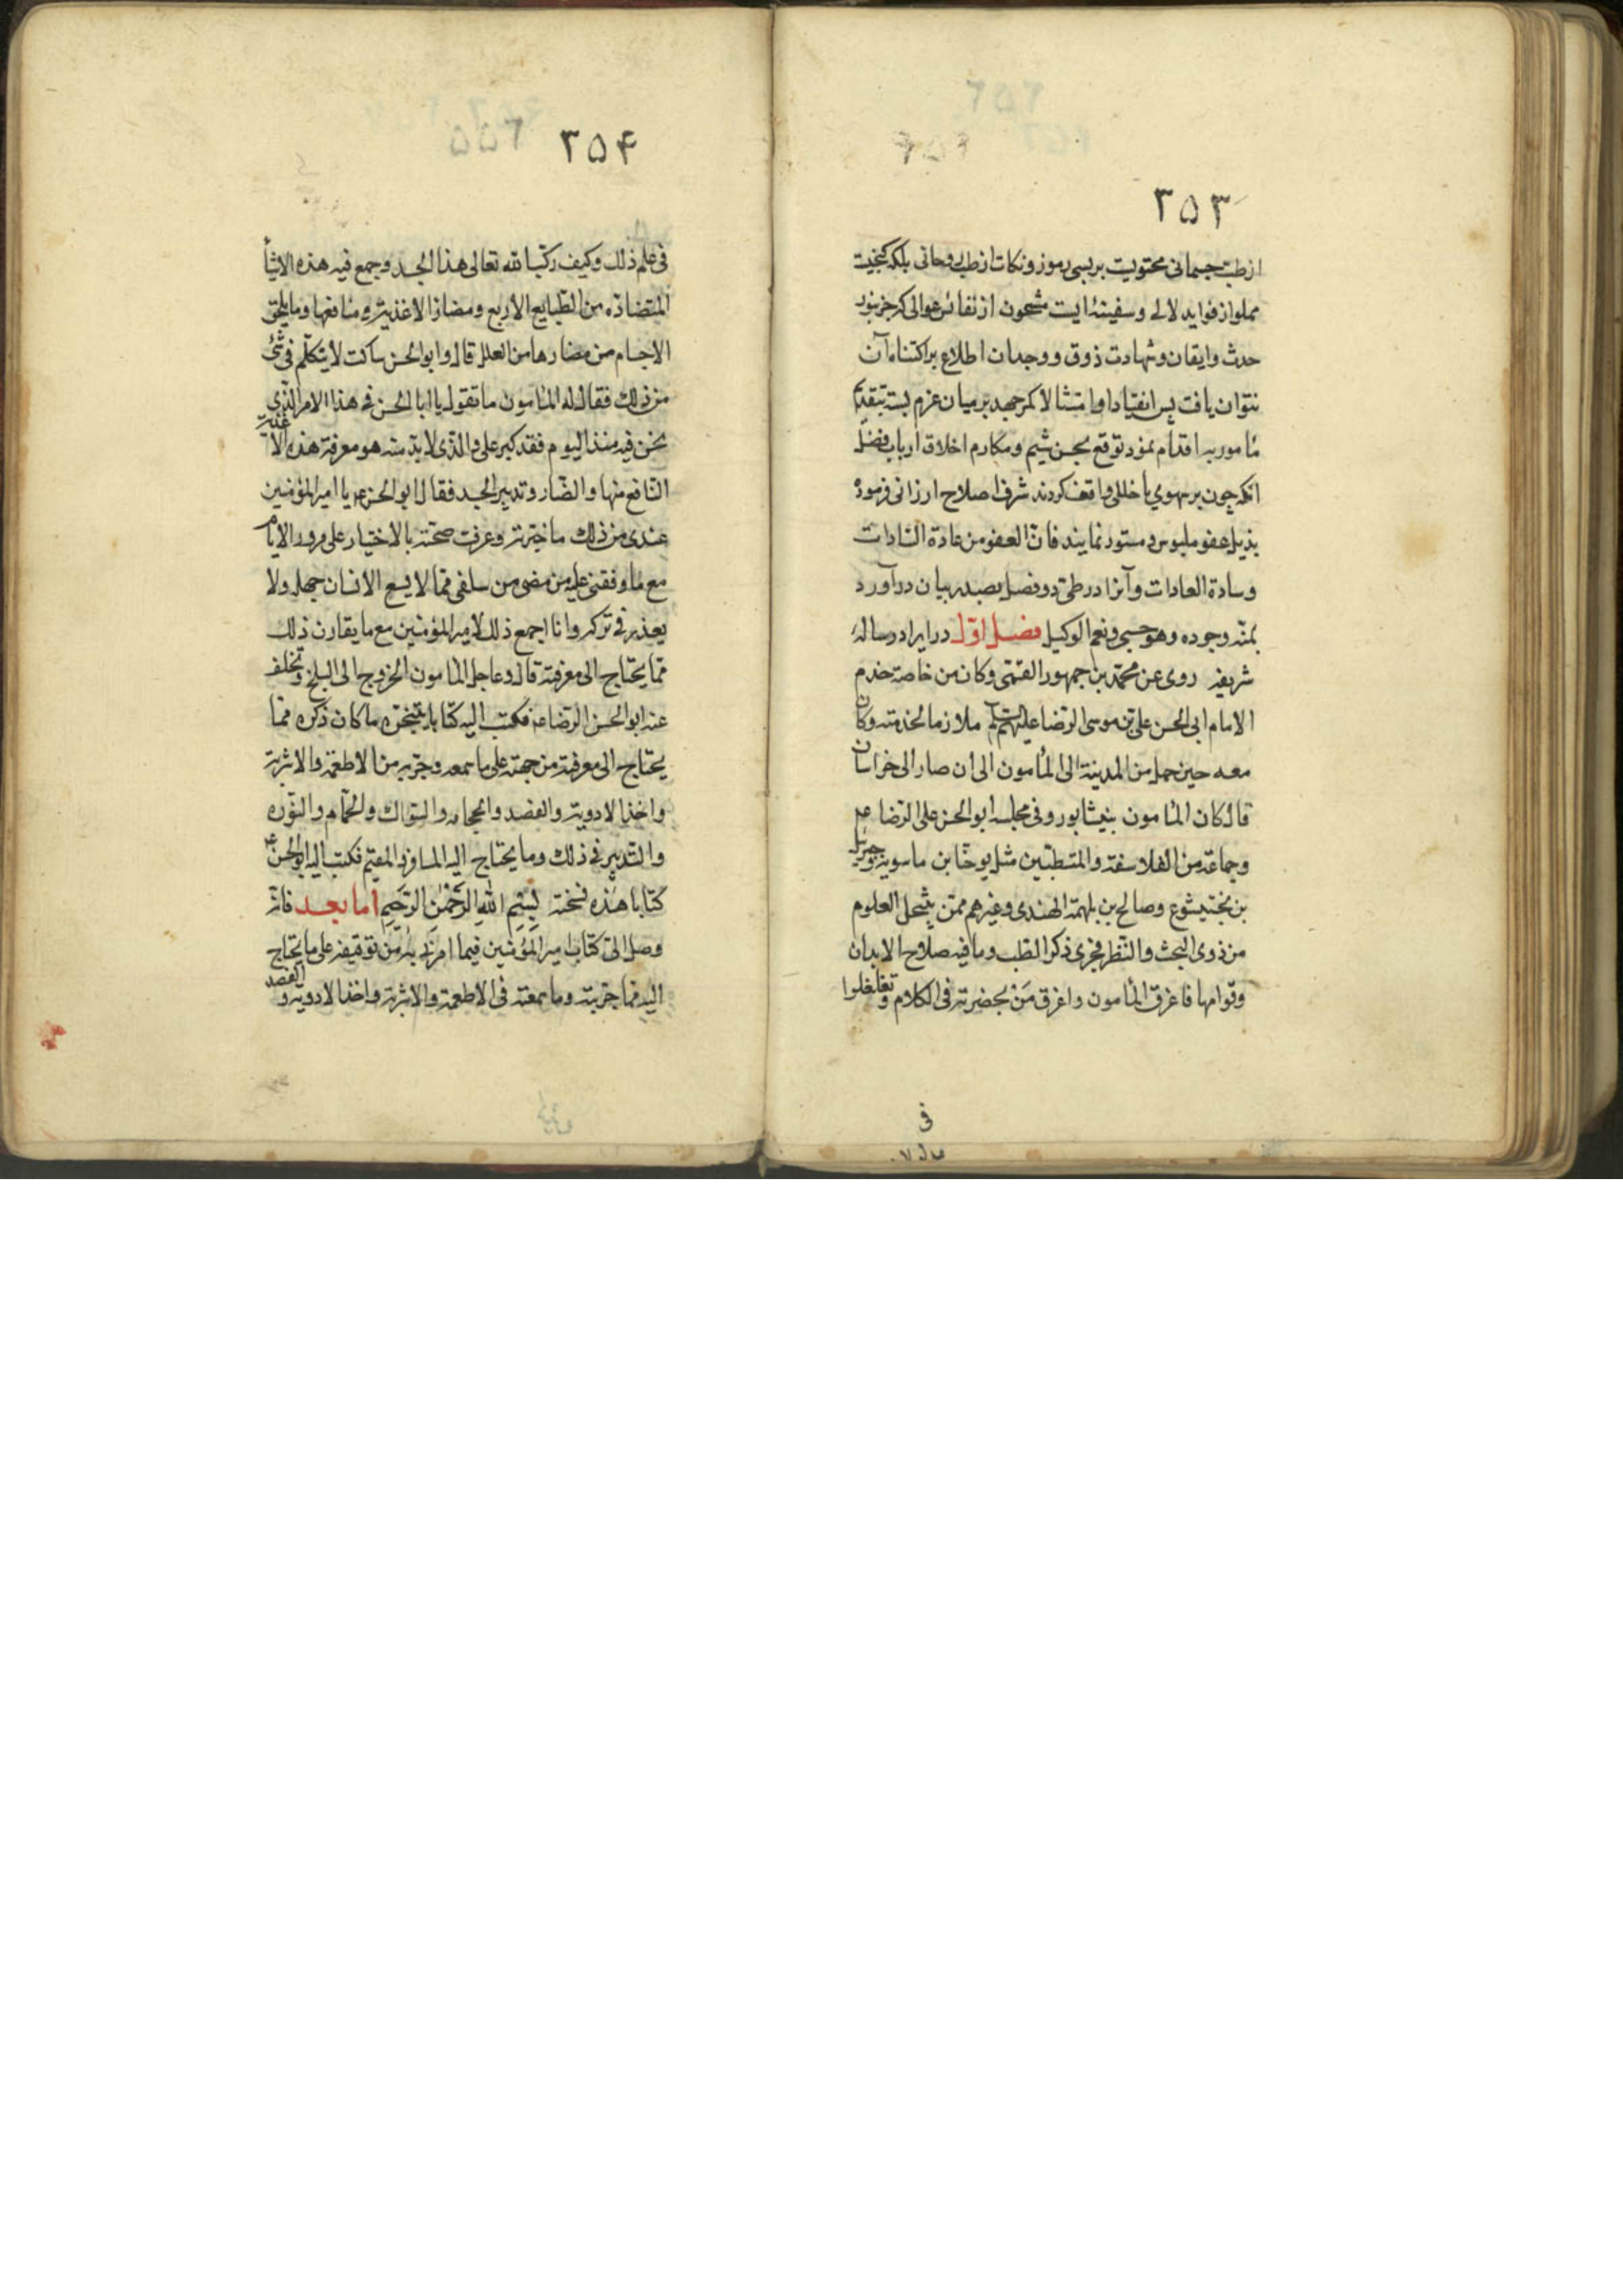 ۲۵۳
از طب جسمانی محتویست بر بسی رموز و نکات از طب روحانی بلکه گنجیست
مملو از فواید لالی و سفینه ایست مشحون از نفائس عوالی که جز بنور
حدث وایقان و شهادت ذوق و وجدان اطلاع بر اکتناه آن
نتوان یافت پس انقیادا و امتثالا کمر جهد بر میان عزم بسته بتقدیم
مامور به اقدام نمود توقع بحسن شیم و مکارم اخلاق ارباب فضل
انکه چون بر سهوی یا خللی واقف کردند شرف اصلاح ارزانی فرموده
بذیل عفو ملبوس و مستور نمایند فان العفو من عادة السادات
و سادة العادات و آنرا در طی دو فصل بصدد بیان در آورد
بمنّه وجوده وهو حسبی ونعم الوکیل فصل اوّل در ایراد رساله
شریفه روی عن محمّد بن جمهور القمّی وکان من خاصة خدم
الامام ابی الحسن علی بن موسی الرّضا علیهم السلام ملازما لخدمته وکان
معه حین حمل من المدینة الی المأمون الی ان صار الی خراسان
قال کان المأمون بنیشابور وفی مجلسه ابو الحسن علی الرّضا ع
وجماعة من الفلاسفة والمتطبّبین مثل یوحنّا بن ماسویه وجبرئیل
بن بختیشوع وصالح بن بلهمة الهندی وغیرهم ممّن ینتحل العلوم
من ذوی البحث والنّظر فجری ذکر الطب وما فیه صلاح الابدان
وقوامها فاغرق المأمون واغرق مَنْ بحضرته فی الکلام وتغلغلوا
فی
۲۵۴
فی علم ذلک وکیف رکّب الله تعالی هذا الجسد وجمع فیه هذه الاشیأ
المتضادّة من الطّبایع الاربع ومضارّ الاغذیة ومنافعها وما یلحق
الاجسام من مضارها من العلل قال وابو الحسن ساکت لا یتکلّم فی شئ
من ذلک فقال له المأمون ما تقول یا ابا الحسن فی هذا الامر الّذی
نحن فیه منذ الیوم فقد کبر علی والّذی لا بدّ منه هو معرفة هذه الاغذیة
النّافع منها والضّار وتدبیر الجسد فقال ابو الحسن ع یا امیر المؤمنین
عندی من ذلک ما جرّبته وعرفت صحّته بالاختیار علی مرور الایّام
مع ما وقفنی علیه من مضی من سلفی ممّا لا یسع الانسان جهله ولا
یعذر فی ترکه وانا اجمع ذلک لامیر المؤمنین مع ما یقارن ذلک
ممّا یحتاج الی معرفته قال وعاجل المأمون الخروج الی البلخ وتخلف
عنه ابو الحسن الرّضا ع فکتب الیه کتابا یتنجزه ما کان ذکره ممّا
یحتاج الی معرفته من جهته علی ما سمعه وجرّبه من الاطعمة والاشربة
واخذ الادویة والفصد والحجامه والسّواک والحمّام والنّوره
والتّدبیر فی ذلک وما یحتاج الیه المسافر والمقیم فکتب الیه ابو الحسن ع
کتابا هذه نسخته بِسْمِ اللهِ الرَّحْمٰنِ الرَّحِیمِ اما بعد فانّه
وصل الیّ کتاب امیر المؤمنین فیما امرنی به من توقیفه علی ما یحتاج
الیه ممّا جرّبته وما سمعته فی الاطعمة والاشربة واخذ الادویة والفصد